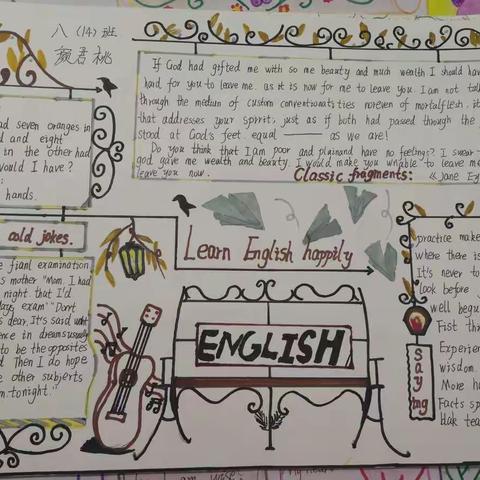 八（14）班
颜君桃
If God had gifted me with so me beauty and much wealth I should have
hard for you to leave me. as it is now for me to leave you. I am not talk
through the medum of custom conventionalities noreven of mortalflesh. it
that addresses your spirit; just as if both had passed through the
stood at God's feet. equal —— as we are!
Do you think that I am poor and plainand have no feelings? I swear
god gave me wealth and beauty. I would make you unable to leave me
leave you now.
Classic fragments: 《Jane Ey
ad seven oranges in
d and eight
in the other had
would I have?
hands.
cold jokes.
e fianl examination
s mother "Mom. I had
night that I'd
days exam" "Don't
s dear. It's said
ence in dreams usually
to be the opposites
d Then I do hope
e other subjerts
m tonight."
Learn English happily
ENGLISH
practice make
where there is
It's never to
look before
well begu
Fist thr
Experien
wisdom.
More ha
Facts sp
blak tea
saying